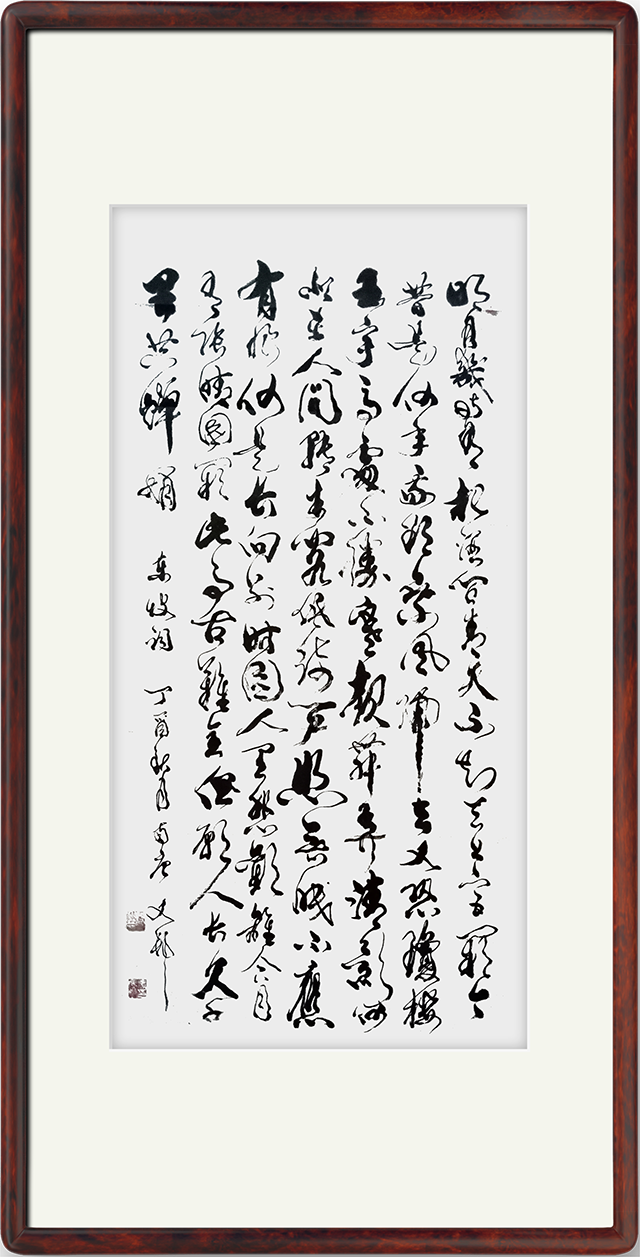 明月幾時有把酒問青天不知天上宮闕今
昔是何年我欲乘風歸去又恐瓊樓
玉宇高處不勝寒起舞弄清影何
似在人間轉朱閣低綺戶照無眠不應
有恨何事長向別時圓人有悲歡離合月
有陰晴圓缺此事古難全但願人長久千
里共嬋娟 東坡詞 丁酉秋月